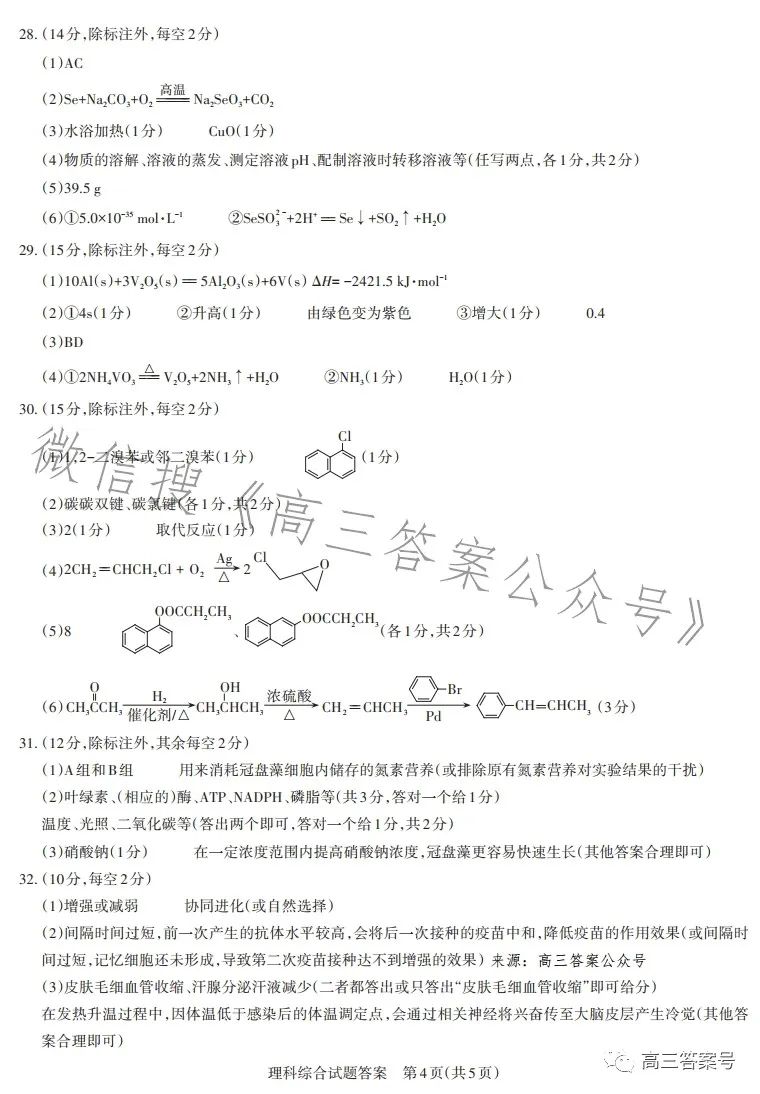 28.(14分,除标注外,每空2分)
(1)AC
(2)Se+Na₂CO₃+O₂ 高温 Na₂SeO₃+CO₂
(3)水浴加热(1分) CuO(1分)
(4)物质的溶解、溶液的蒸发、测定溶液pH、配制溶液时转移溶液等(任写两点,各1分,共2分)
(5)39.5 g
(6)①5.0×10⁻³⁵ mol·L⁻¹ ②SeSO₃²⁻+2H⁺═Se↓+SO₂↑+H₂O
29.(15分,除标注外,每空2分)
(1)10Al(s)+3V₂O₅(s)═5Al₂O₃(s)+6V(s) ΔH=-2421.5 kJ·mol⁻¹
(2)①4s(1分) ②升高(1分) 由绿色变为紫色 ③增大(1分) 0.4
(3)BD
(4)①2NH₄VO₃ △ V₂O₅+2NH₃↑+H₂O ②NH₃(1分) H₂O(1分)
30.(15分,除标注外,每空2分)
(1)1,2-二溴苯或邻二溴苯(1分) Cl (1分)
(2)碳碳双键、碳氯键(各1分,共2分)
(3)2(1分) 取代反应(1分)
(4)2CH₂=CHCH₂Cl + O₂ Ag △ 2 Cl O
(5)8 OOCCH₂CH₃ 、 OOCCH₂CH₃ (各1分,共2分)
(6) O CH₃CCH₃ H₂ 催化剂/△ OH CH₃CHCH₃ 浓硫酸 △ CH₂=CHCH₃ Br Pd CH=CHCH₃ (3分)
31.(12分,除标注外,其余每空2分)
(1)A组和B组 用来消耗冠盘藻细胞内储存的氮素营养(或排除原有氮素营养对实验结果的干扰)
(2)叶绿素、(相应的)酶、ATP、NADPH、磷脂等(共3分,答对一个给1分)
温度、光照、二氧化碳等(答出两个即可,答对一个给1分,共2分)
(3)硝酸钠(1分) 在一定浓度范围内提高硝酸钠浓度,冠盘藻更容易快速生长(其他答案合理即可)
32.(10分,每空2分)
(1)增强或减弱 协同进化(或自然选择)
(2)间隔时间过短,前一次产生的抗体水平较高,会将后一次接种的疫苗中和,降低疫苗的作用效果(或间隔时
间过短,记忆细胞还未形成,导致第二次疫苗接种达不到增强的效果) 来源：高三答案公众号
(3)皮肤毛细血管收缩、汗腺分泌汗液减少(二者都答出或只答出“皮肤毛细血管收缩”即可给分)
在发热升温过程中,因体温低于感染后的体温调定点,会通过相关神经将兴奋传至大脑皮层产生冷觉(其他答
案合理即可)
理科综合试题答案 第4页(共5页)
高三答案号
微信搜《高三答案公众号》